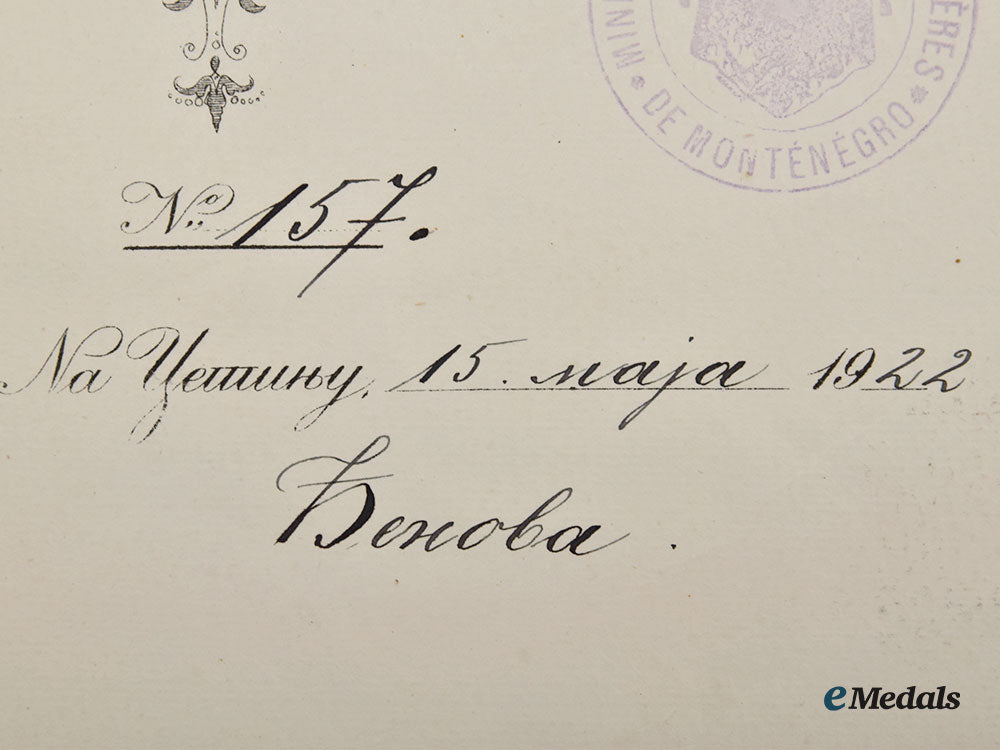 MIN
ÉRES
* DE MONTÉNÉGRO *
No. 157.
На Цетињу, 15. маја 1922
Ђенова.
eMedals